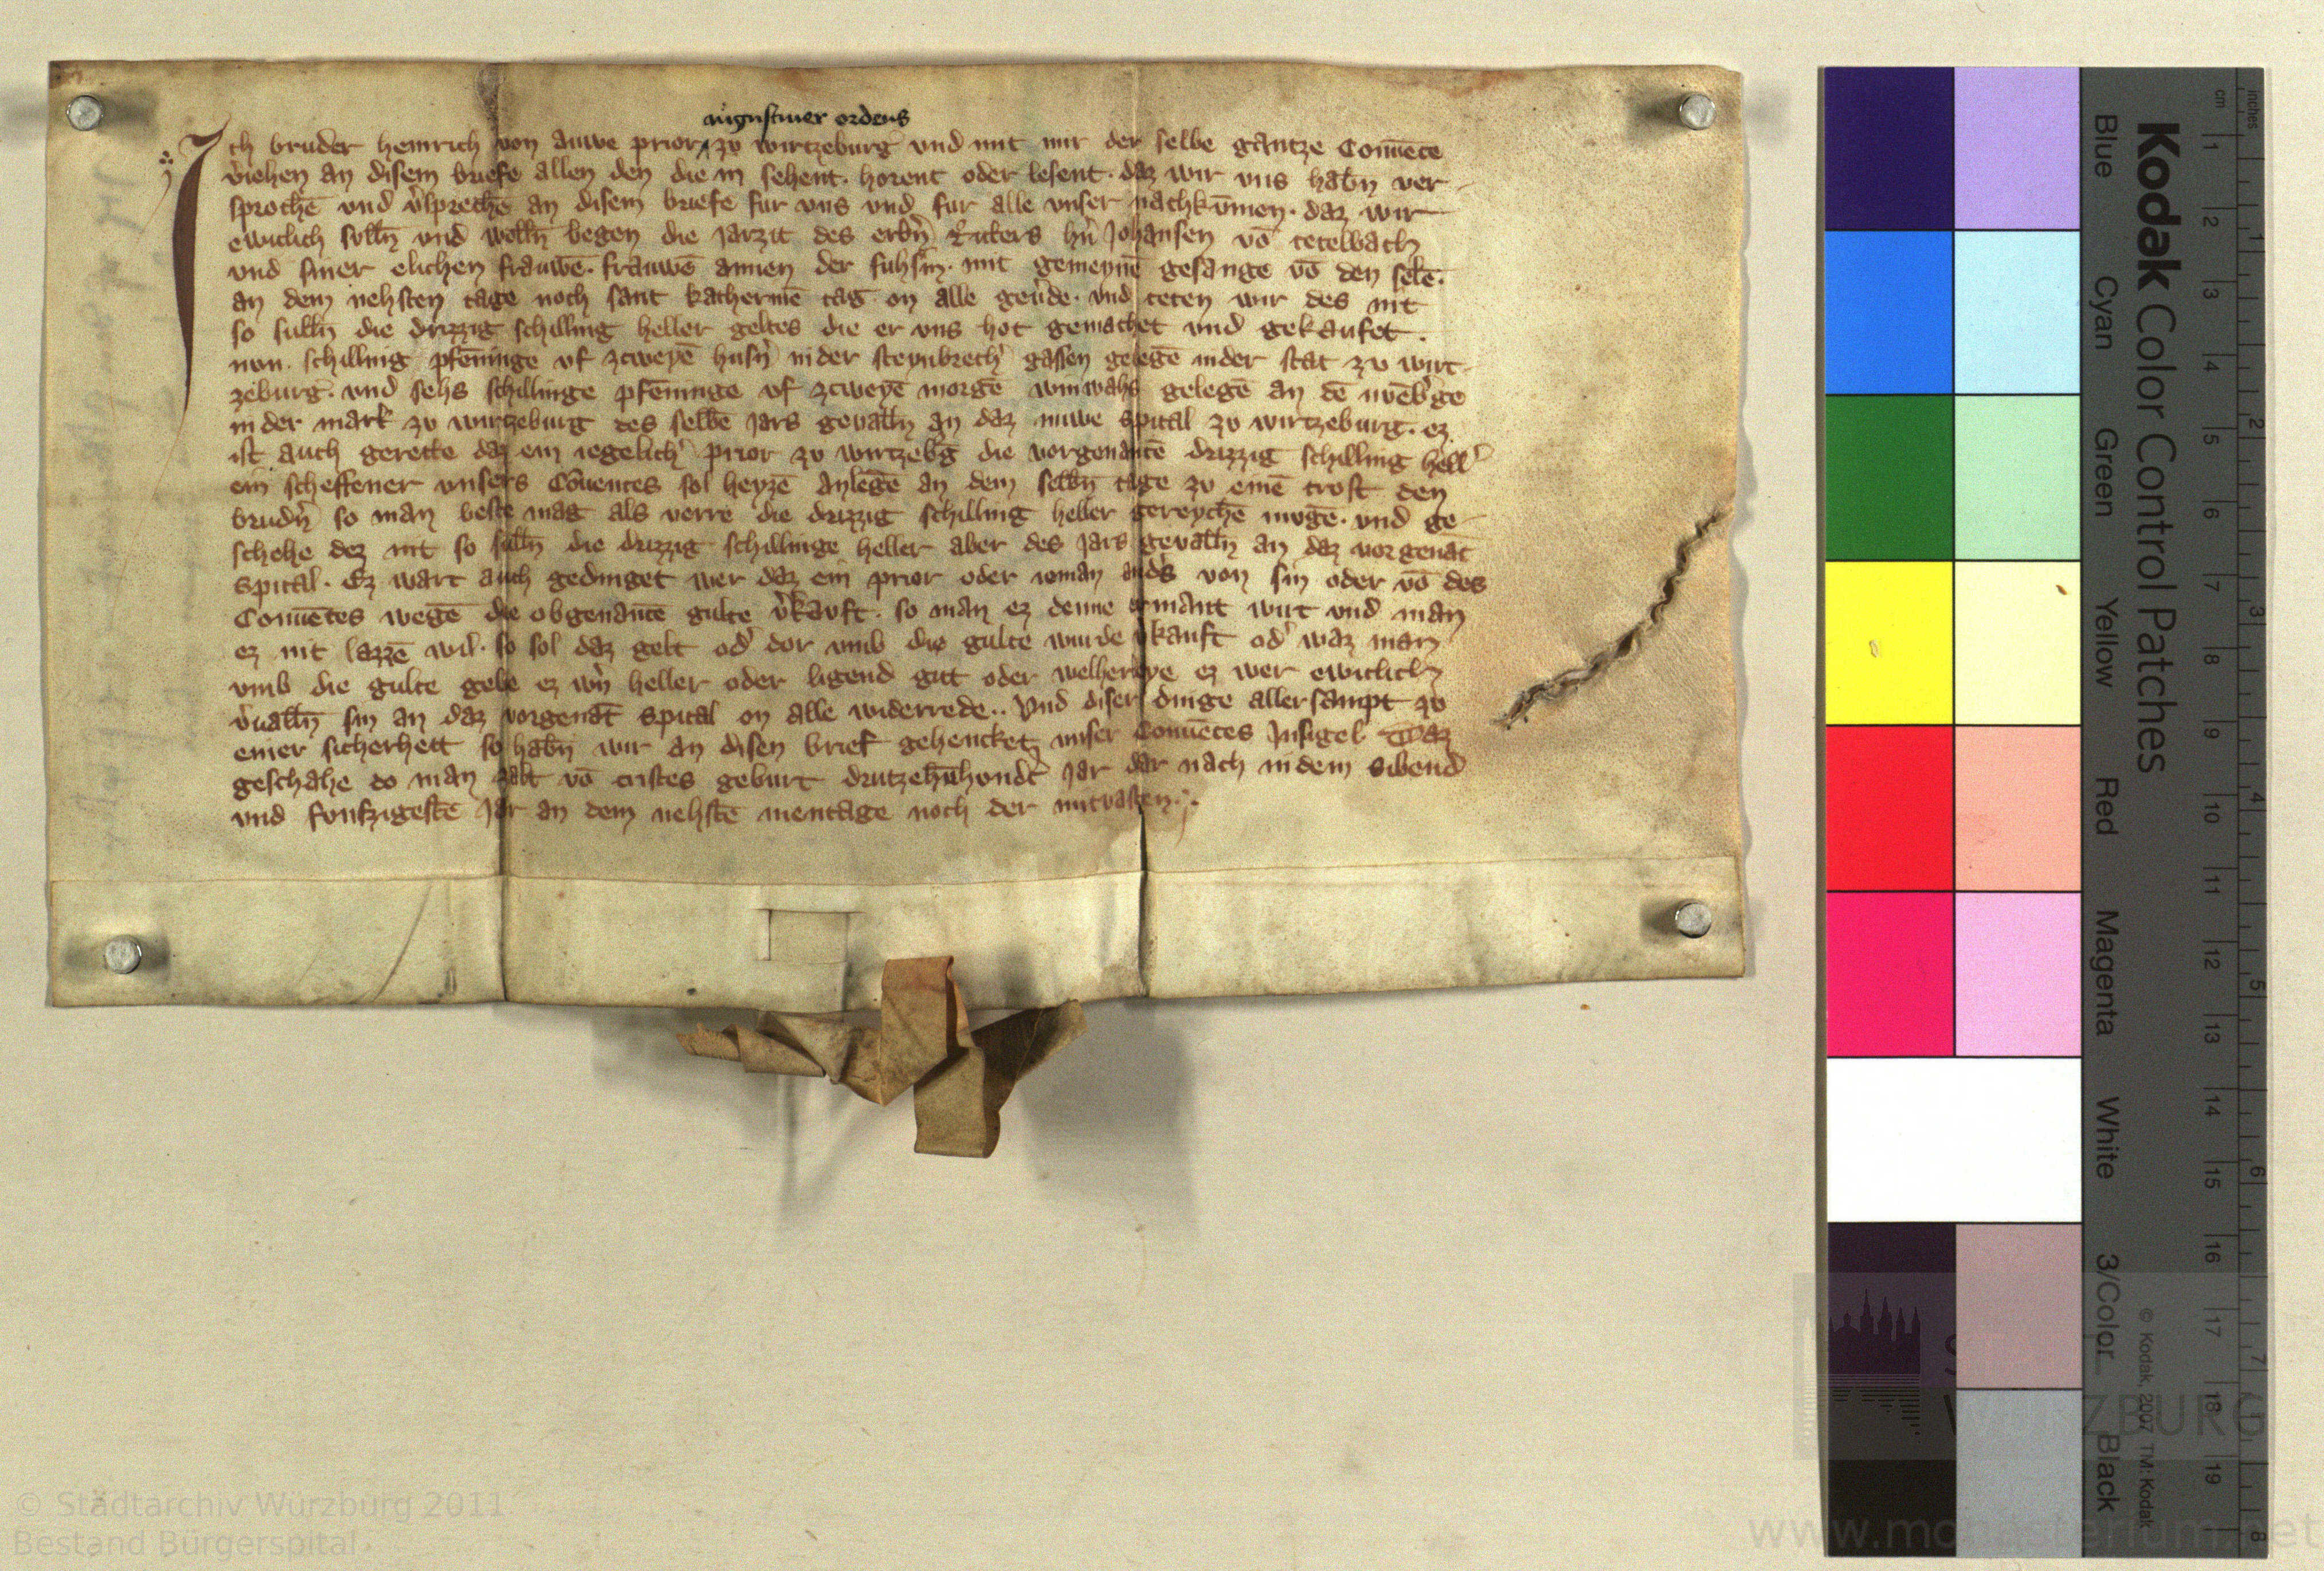 augustiner ordens
Ich bruder heinrich von auwe prior zv wirtzeburg vnd mit mir der selbe gantze Conuēte
v̓iehen an disem briefe allen den die in sehent. horent oder lesent. daz wir vns habn̄ ver-
sprochē vnd v̓sprechē an disem briefe fur vns vnd fur alle vnser nachkūmen. daz wir
ewiclich solln̄ vnd welln̄ began die jarzit des erbn̄ Ritters hn̄ Johansen vō tetelbach
vnd siner elichen frauwē. frauwē annen der fuhsin. mit gemeynē gesange vō den selē.
an dem nehsten tage noch sant katherinē tag on alle gev̓de. vnd teten wir des nit
so sulln̄ die drizzig schilling heller geltes die er vns hot gemachet vnd gekaufet.
nvn. schilling pfēninge vf zcweyē husn̓ in der steynbrech̓ gassen gelegē in der stat zv wirt-
zeburg. vnd sehs schillinge pfēninge vf zcweyē morgē winwahs gelegē an dē
in der mark zv wirtzeburg des selbē jars geualln̄ an daz nuwe spital zv wirtzeburg. ez
ist auch gerette daz ein iegelich̓ prior zv wirtzebḡ die vorgenantē drizzig schilling hell̓
ein scheffener vnsers Cōuentes sol heyzē anlegē an dem selbn̄ tage zv einē trost den
brudn̓ so man beste mag als verre die drizzig schilling heller gereychē mvgē. vnd ge-
schehe dez nit so sulln̄ die drizzig schillinge heller aber des jars geualln̄ an daz vorgenāt
spital. Ez wart auch gedinget wer daz ein prior oder ieman and̓s von sin oder vō des
Conuētes wegē die obgenantē gulte v̓kauft. so man ez denne ermant wirt vnd man
ez nit lazzē wil. so sol daz gelt od̓ dor vmb die gulte wurde v̓kauft od̓ waz man
vmb die gulte gebe ez wn̓ heller oder ligend gut oder welherleye ez wer ewiclich
v̓ualln̄ sin an daz vorgenāt spital on alle widerrede.. Vnd diser dinge allersampt zv
einer sicherheit so habn̄ wir an disen brief gehencket vnser Conuētes Insigel Daz
geschahe do man zalt vō cristes geburt drutzehūhondt̓ Jar dar nach in dem sibend
vnd funfzigestē Jar an dem nehstē mentage noch der mitvasten.
Kodak Color Control Patches
Blue Cyan Green Yellow Red Magenta White 3/Color Black
© Kodak, 2007 TM: Kodak
cm 1 2 3 4 5 6 7 8 9 10 11 12 13 14 15 16 17 18 19
inches 1 2 3 4 5 6 7 8
WÜRZBURG
© Stadtarchiv Würzburg 2011
Bestand Bürgerspital
www.monasterium.net